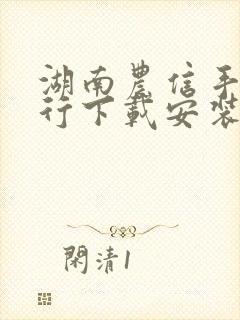 湖南農信手
行下載安裝
閑清1